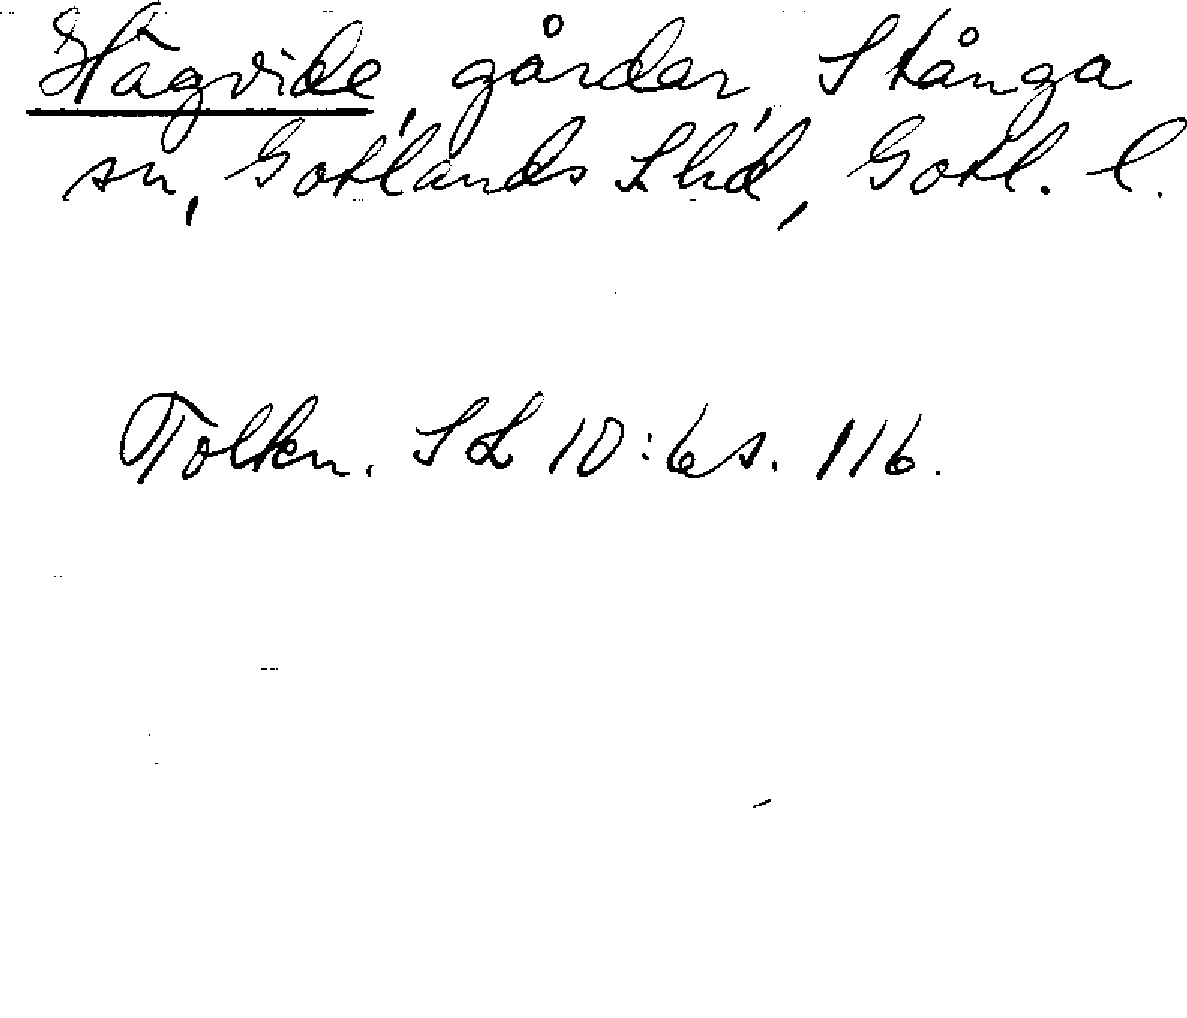 Hågvide, gårdar, Stånga
sn, Gotlands S hd, Gotl. l.
Tolkn. SL 10:6 s. 116.